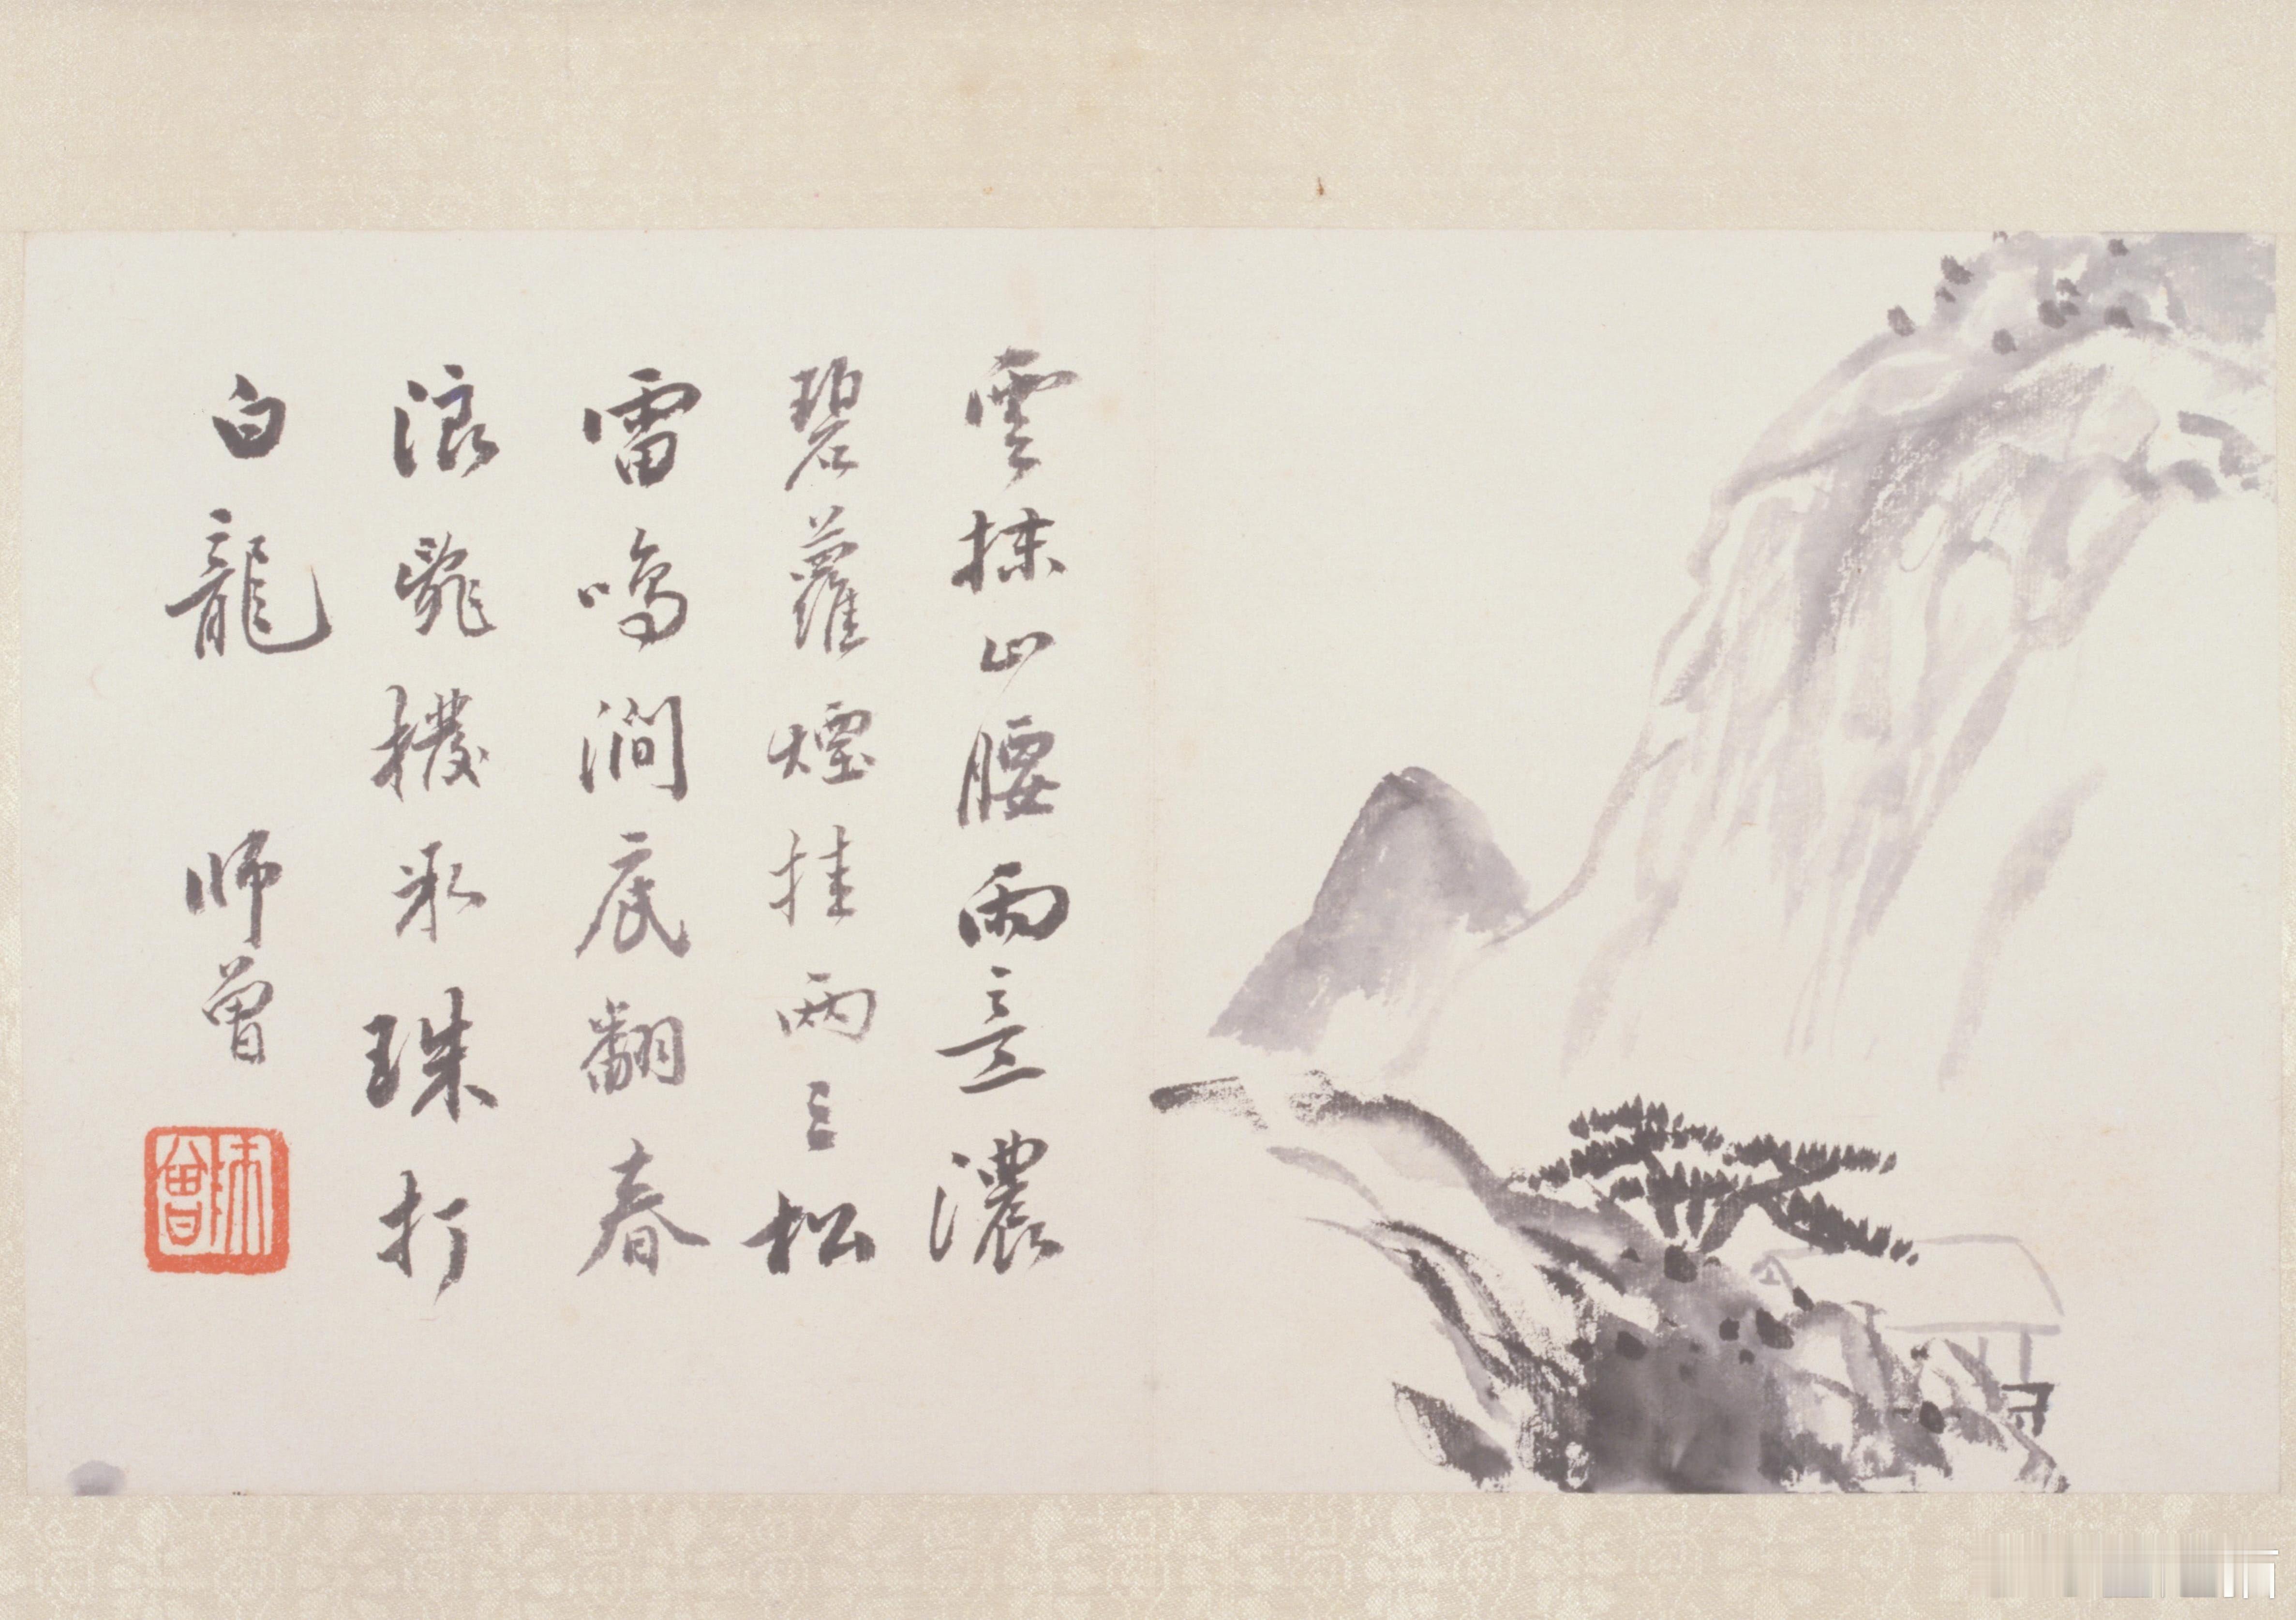 雲抹山腰雨意濃
碧蘿煙挂兩三松
雷鳴澗底翻春
浪亂撥氷珠打
白龍 師曾
師曾